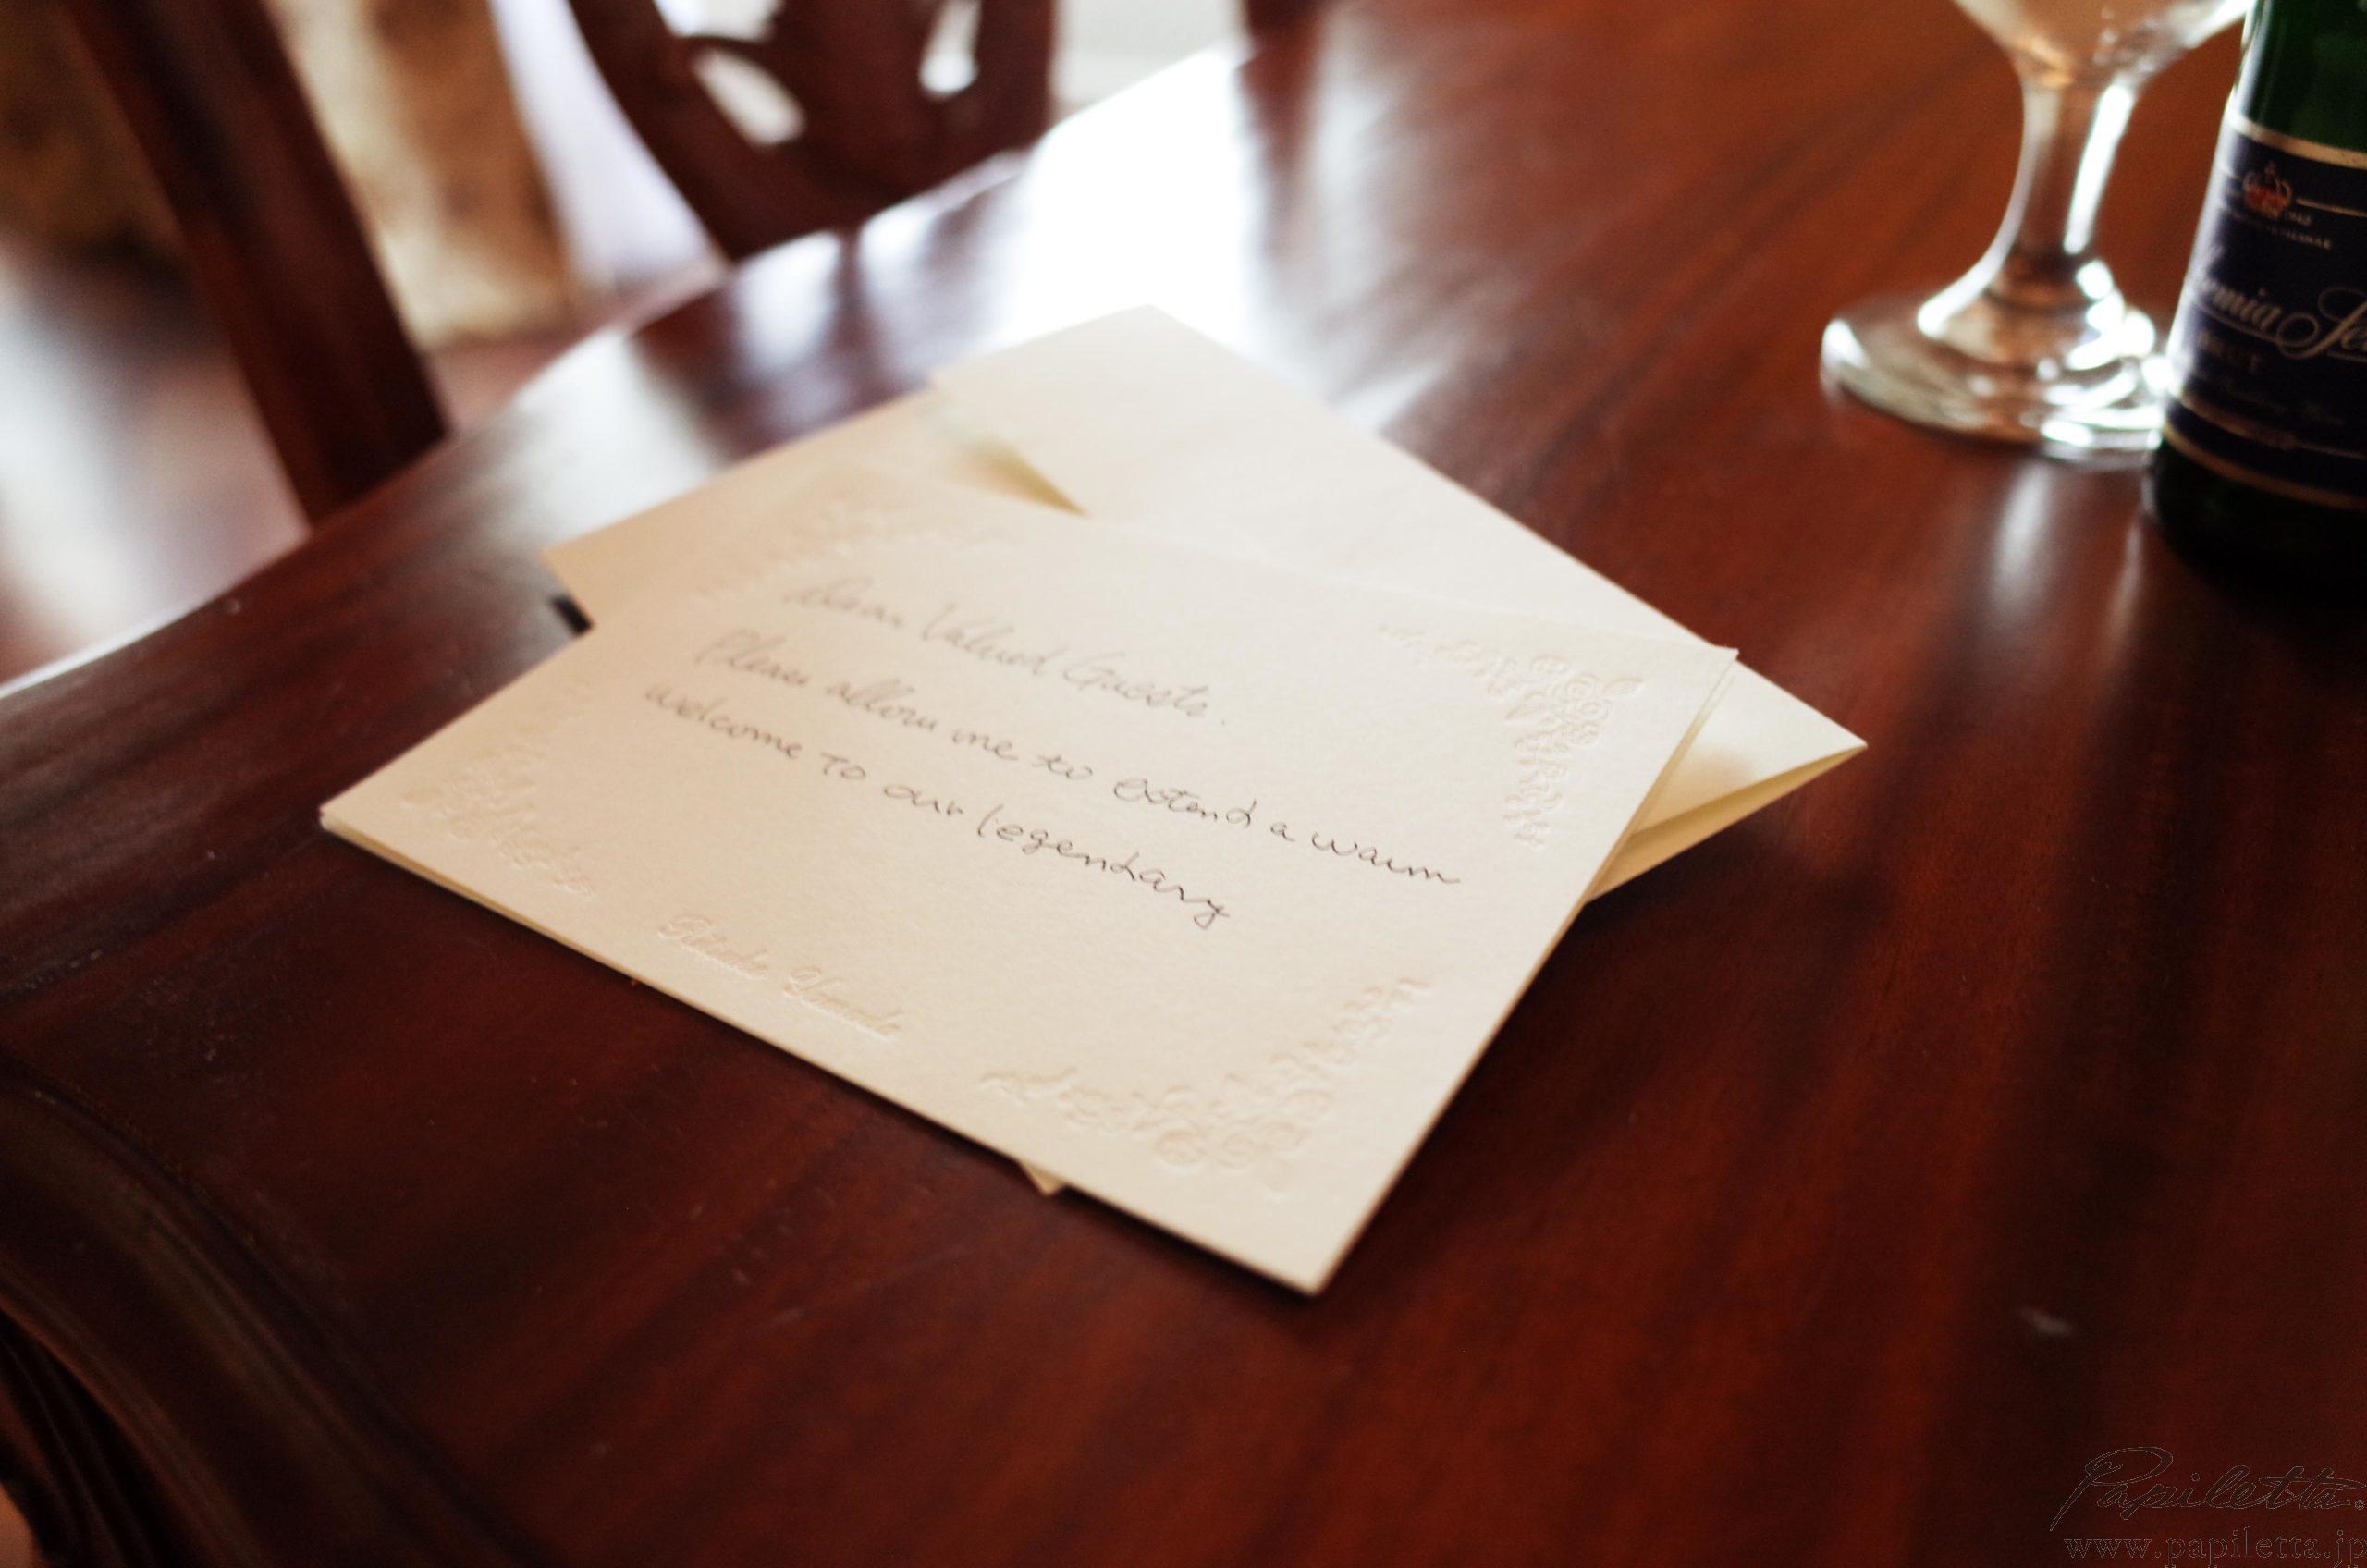 Dear Valued Guests.
Please allow me to extend a warm
welcome to our legendary
BRUT
Papiletta.
www.papiletta.jp